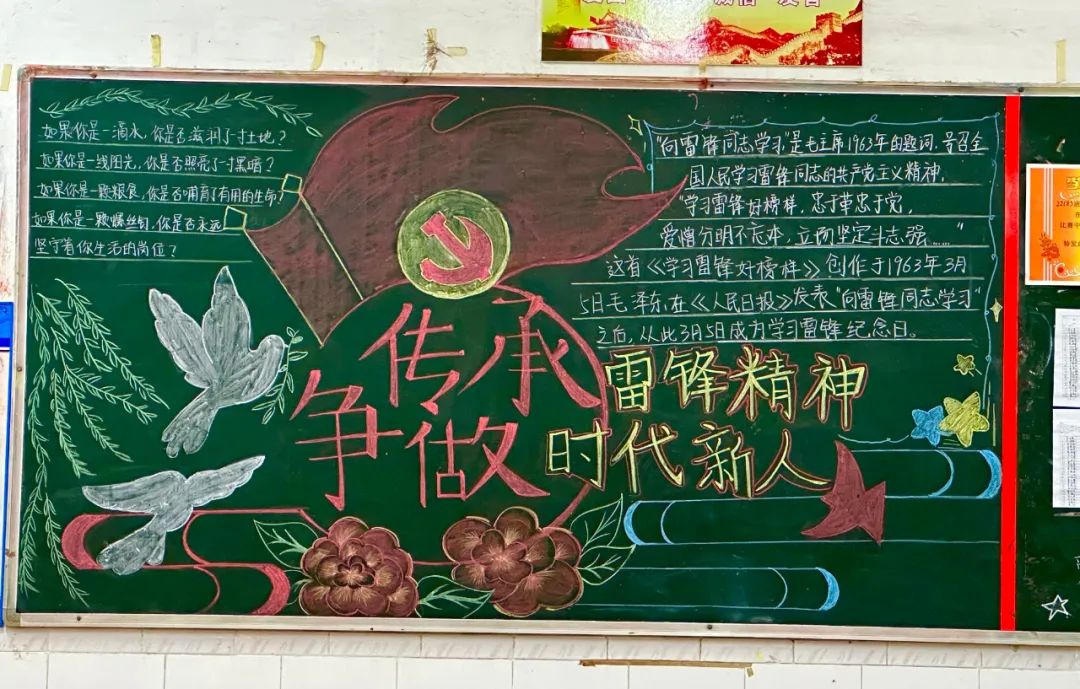 如果你是一滴水，你是否滋润了一寸土地？
如果你是一线阳光，你是否照亮了一寸黑暗？
如果你是一颗粮食，你是否哺育了有用的生命？
如果你是一颗螺丝钉，你是否永远
坚守着你生活的岗位？
"向雷锋同志学习"是毛主席1963年由题词，号召全
国人民学习雷锋同志的共产党主义精神，
"学习雷锋好榜样，忠于革忠于党，
爱憎分明不忘本，立场坚定斗志强……"
这首《学习雷锋好榜样》创作于1963年3月
5日毛泽东在《人民日报》发表"向雷锋同志学习"
之后，从此3月5日成为学习雷锋纪念日。
传承
雷锋精神
争做
时代新人